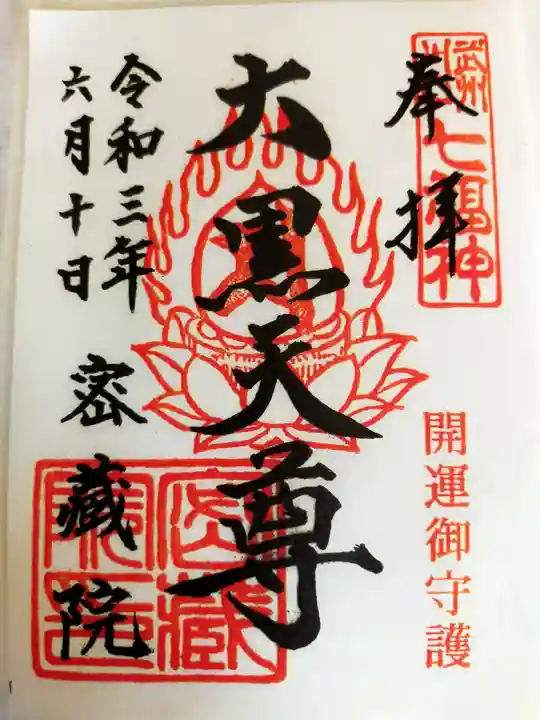 奉拝
武州川口七福神
開運御守護
大黒天尊
令和三年
六月十日
密蔵院
密蔵院印